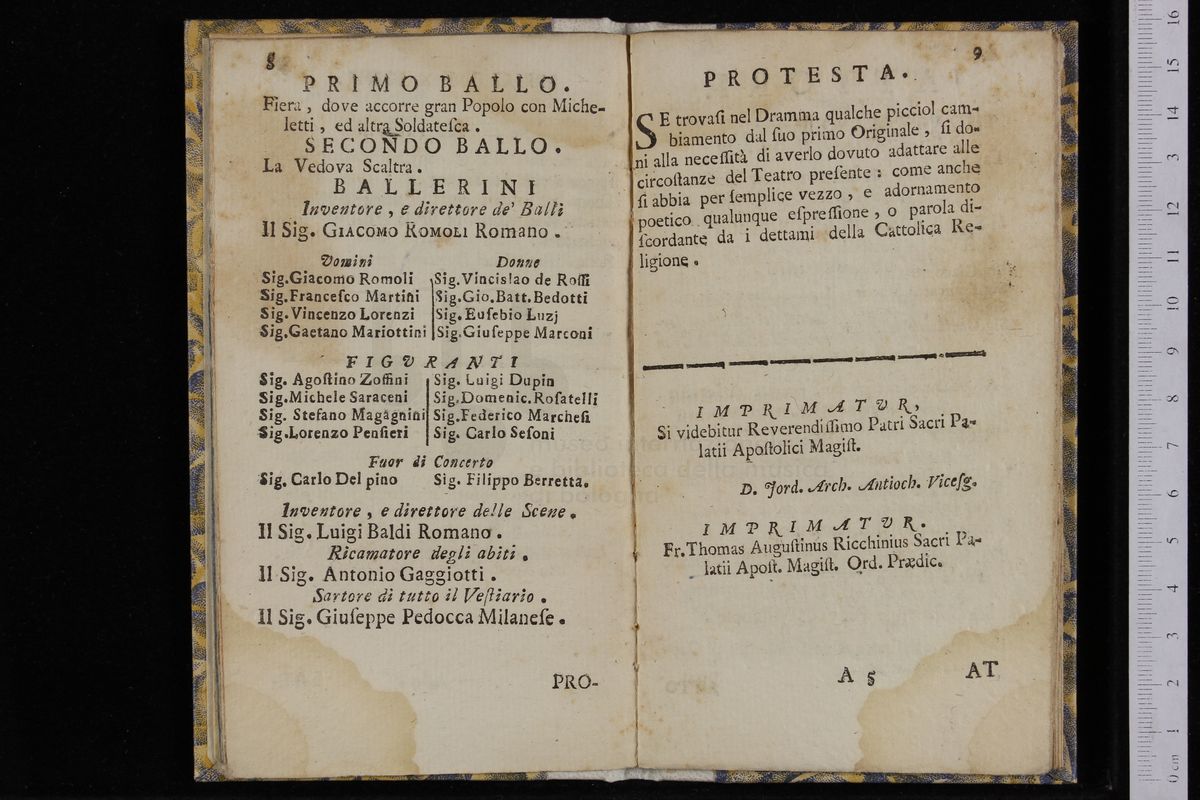 8
PRIMO BALLO.
Fiera, dove accorre gran Popolo con Miche-
letti, ed altra Soldatesca.
SECONDO BALLO.
La Vedova Scaltra.
BALLERINI
Inventore, e direttore de' Balli
Il Sig. GIACOMO ROMOLI Romano.
Vomini Donne
Sig.Giacomo Romoli Sig.Vincislao de Rossi
Sig.Francesco Martini Sig.Gio.Batt.Bedotti
Sig.Vincenzo Lorenzi Sig.Eusebio Luzj
Sig.Gaetano Mariottini Sig.Giuseppe Marconi
FIGVRANTI
Sig. Agostino Zoffini Sig. Luigi Dupin
Sig.Michele Saraceni Sig.Domenic.Rosatelli
Sig. Stefano Magagnini Sig.Federico Marchesi
Sig.Lorenzo Pensieri Sig. Carlo Sesoni
Fuor di Concerto
Sig. Carlo Del pino Sig. Filippo Berretta.
Inventore, e direttore delle Scene.
Il Sig. Luigi Baldi Romano.
Ricamatore degli abiti.
Il Sig. Antonio Gaggiotti.
Sartore di tutto il Vestiario.
Il Sig. Giuseppe Pedocca Milanese.
PRO-
9
PROTESTA.
SE trovasi nel Dramma qualche picciol cam-
biamento dal suo primo Originale, si do-
ni alla necessità di averlo dovuto adattare alle
circostanze del Teatro presente: come anche
si abbia per semplice vezzo, e adornamento
poetico qualunque espressione, o parola di-
scordante da i dettami della Cattolica Re-
ligione.
IMPRIMATVR,
Si videbitur Reverendissimo Patri Sacri Pa-
latii Apostolici Magist.
D. Jord. Arch. Antioch. Vicesg.
IMPRIMATVR.
Fr.Thomas Augustinus Ricchinius Sacri Pa-
latii Apost. Magist. Ord. Prædic.
A 5 AT
16
15
14
13
12
11
10
9
8
7
6
5
4
3
2
1
0 cm